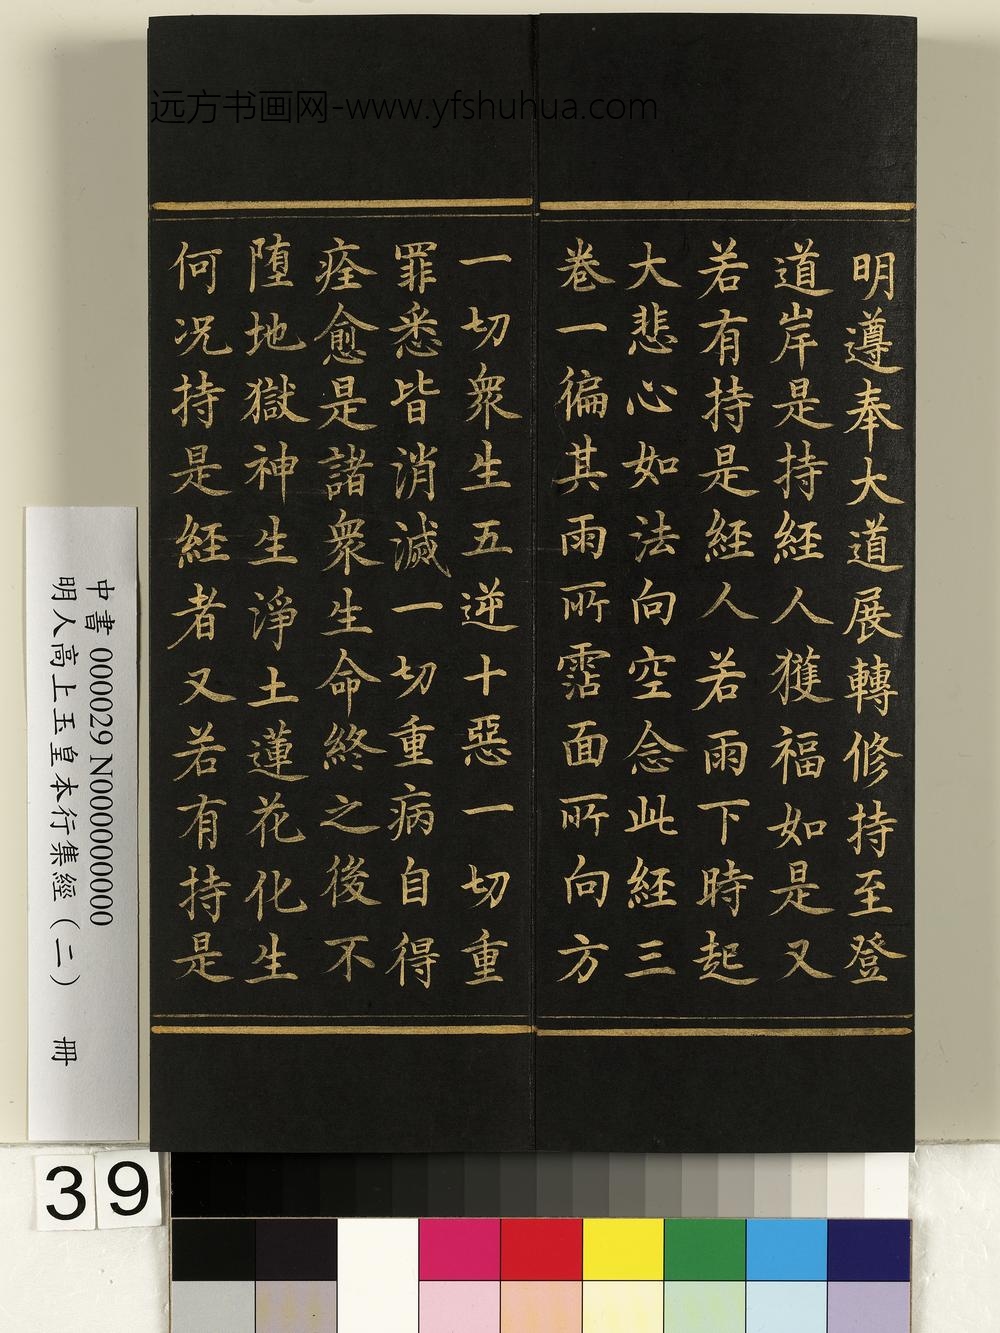 远方书画网-www.yfshuhua.com
明遵奉大道展轉修持至登
道岸是持經人獲福如是又
若有持是經人若雨下時起
大悲心如法向空念此經三
卷一徧其雨所霑面所向方
一切衆生五逆十惡一切重
罪悉皆消滅一切重病自得
痊愈是諸衆生命終之後不
墮地獄神生淨土蓮花化生
何况持是經者又若有持是
中書 000029 N000000000
明人高上玉皇本行集經(二) 冊
39